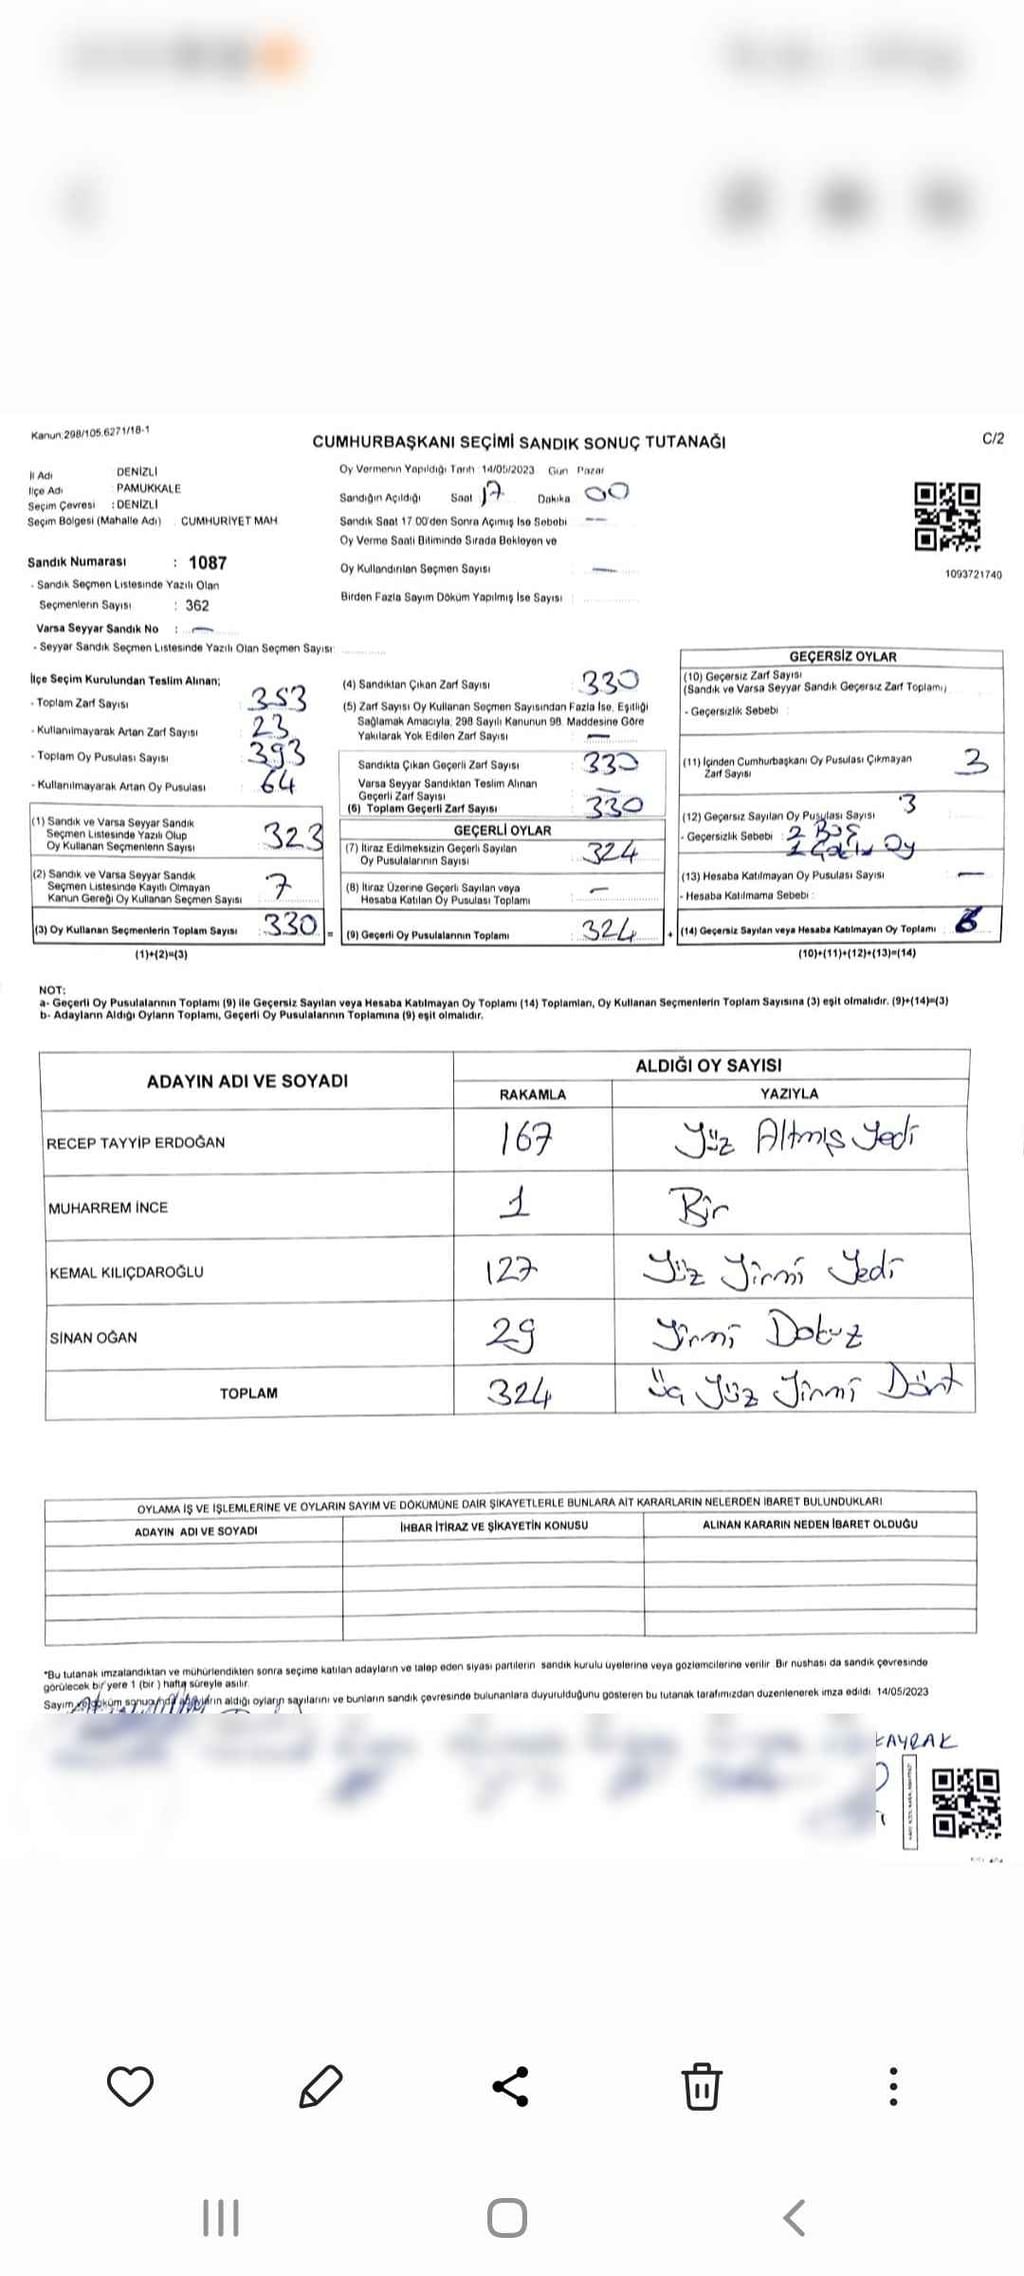 Kanun;298/105.6271/18-1
CUMHURBAŞKANI SEÇİMİ SANDIK SONUÇ TUTANAĞI
C/2
İl Adı DENİZLİ
İlçe Adı : PAMUKKALE
Seçim Çevresi : DENİZLİ
Seçim Bölgesi (Mahalle Adı) CUMHURİYET MAH
Sandık Numarası : 1087
- Sandık Seçmen Listesinde Yazılı Olan
Seçmenlerin Sayısı : 362
Varsa Seyyar Sandık No : —
- Seyyar Sandık Seçmen Listesinde Yazılı Olan Seçmen Sayısı
Oy Vermenin Yapıldığı Tarih 14/05/2023 Gün Pazar
Sandığın Açıldığı Saat 17 Dakika 00
Sandık Saat 17.00'den Sonra Açımış İse Sebebi —
Oy Verme Saati Bitiminde Sırada Bekleyen ve
Oy Kullandırılan Seçmen Sayısı —
Birden Fazla Sayım Döküm Yapılmış İse Sayısı :
1093721740
İlçe Seçim Kurulundan Teslim Alınan;
- Toplam Zarf Sayısı 353
- Kullanılmayarak Artan Zarf Sayısı 23
- Toplam Oy Pusulası Sayısı 393
- Kullanılmayarak Artan Oy Pusulası 64
(1) Sandık ve Varsa Seyyar Sandık
Seçmen Listesinde Yazılı Olup
Oy Kullanan Seçmenlerin Sayısı 323
(2) Sandık ve Varsa Seyyar Sandık
Seçmen Listesinde Kayıtlı Olmayan
Kanun Gereği Oy Kullanan Seçmen Sayısı 7
(3) Oy Kullanan Seçmenlerin Toplam Sayısı : 330 =
(1)+(2)=(3)
(4) Sandıktan Çıkan Zarf Sayısı 330
(5) Zarf Sayısı Oy Kullanan Seçmen Sayısından Fazla İse, Eşitliği
Sağlamak Amacıyla, 298 Sayılı Kanunun 98. Maddesine Göre
Yakılarak Yok Edilen Zarf Sayısı —
Sandıkta Çıkan Geçerli Zarf Sayısı 330
Varsa Seyyar Sandıktan Teslim Alınan
Geçerli Zarf Sayısı —
(6) Toplam Geçerli Zarf Sayısı 330
GEÇERLİ OYLAR
(7) İtiraz Edilmeksizin Geçerli Sayılan
Oy Pusulalarının Sayısı 324
(8) İtiraz Üzerine Geçerli Sayılan veya
Hesaba Katılan Oy Pusulası Toplamı —
(9) Geçerli Oy Pusulalarının Toplamı : 324 +
GEÇERSİZ OYLAR
(10) Geçersiz Zarf Sayısı
(Sandık ve Varsa Seyyar Sandık Geçersiz Zarf Toplamı)
- Geçersizlik Sebebi :
(11) İçinden Cumhurbaşkanı Oy Pusulası Çıkmayan
Zarf Sayısı 3
(12) Geçersiz Sayılan Oy Pusulası Sayısı 3
- Geçersizlik Sebebi : 2 Boş
Oy
(13) Hesaba Katılmayan Oy Pusulası Sayısı —
- Hesaba Katılmama Sebebi :
(14) Geçersiz Sayılan veya Hesaba Katılmayan Oy Toplamı : 6
(10)+(11)+(12)+(13)=(14)
NOT:
a- Geçerli Oy Pusulalarının Toplamı (9) ile Geçersiz Sayılan veya Hesaba Katılmayan Oy Toplamı (14) Toplamları, Oy Kullanan Seçmenlerin Toplam Sayısına (3) eşit olmalıdır. (9)+(14)=(3)
b- Adayların Aldığı Oyların Toplamı, Geçerli Oy Pusulalarının Toplamına (9) eşit olmalıdır.
ADAYIN ADI VE SOYADI ALDIĞI OY SAYISI
RAKAMLA YAZIYLA
RECEP TAYYİP ERDOĞAN 167 Yüz Altmış Yedi
MUHARREM İNCE 1 Bir
KEMAL KILIÇDAROĞLU 127 Yüz Yirmi Yedi
SİNAN OĞAN 29 Yirmi Dokuz
TOPLAM 324 Üç Yüz Yirmi Dört
OYLAMA İŞ VE İŞLEMLERİNE VE OYLARIN SAYIM VE DÖKÜMÜNE DAİR ŞİKAYETLERLE BUNLARA AİT KARARLARIN NELERDEN İBARET BULUNDUKLARI
ADAYIN ADI VE SOYADI İHBAR İTİRAZ VE ŞİKAYETİN KONUSU ALINAN KARARIN NEDEN İBARET OLDUĞU
*Bu tutanak imzalandıktan ve mühürlendikten sonra seçime katılan adayların ve talep eden siyasi partilerin sandık kurulu üyelerine veya gözlemcilerine verilir Bir nushası da sandık çevresinde
görülecek bir yere 1 (bir ) hafta süreyle asılır.
Sayım döküm aldığı oyların sayılarını ve bunların sandık çevresinde bulunanlara duyurulduğunu gösteren bu tutanak tarafımızdan düzenlenerek imza edildi 14/05/2023